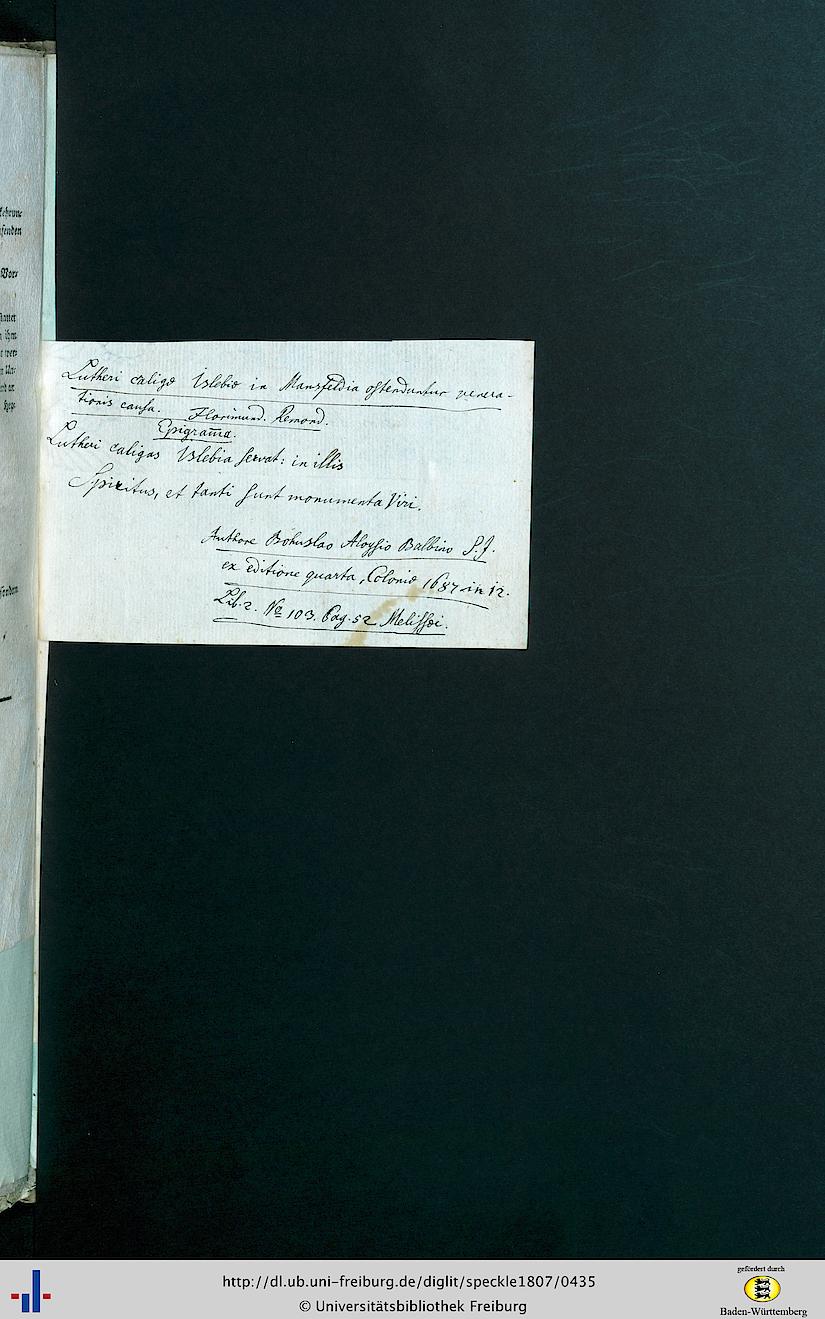 Lutheri caligæ Islebiæ in Mansfeldia ostenduntur venera-
tionis causa. Florimund. Remond.
Epigram̄a.
Lutheri caligas Islebia servat: in illis
Spiritus, et tanti sunt monumenta Viri.
Authore Bohuslao Aloysio Balbino S. J.
ex editione quarta, Coloniæ 1687 in 12.
Lib. 2. No 103. Pag. 52 Melissæi.
senden
Vor-
ihm
http://dl.ub.uni-freiburg.de/diglit/speckle1807/0435
© Universitätsbibliothek Freiburg
gefördert durch
Baden-Württemberg